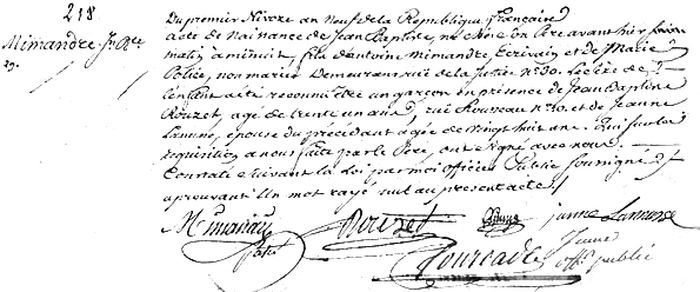 218
Mimandre Jn Bte
29.
Du premier Nivose an neuf de la Republique française
acte de Naissance de Jean Baptiste, né avant hier
matin à minuit, fils d'antoine Mimandre, Ecrivain et de Marie
non mariés Demeurant rue de la Justice N° 30. Le sexe de
L'enfant a été reconnu être un garçon en présence de Jean Baptiste
Rouzet, agé de trente un ans, rue Rousseau N° 10. et de Jeanne
Lamure, épouse du précédant agée de vingt huit ans. Qui sur la
requisition a nous faite par le Père, ont signé avec nous
Constaté suivant la Loi par moi officier Public soussigné
aprouvant Un mot rayé nul au present acte
Rouzet
janne Lamure
Fourcade
Jeune
offr. public